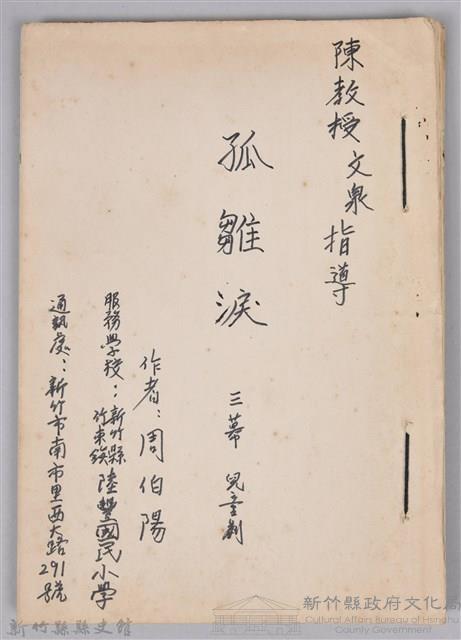 陳教授文泉指導
孤雛淚
三幕 兒童劇
作者：周伯陽
服務學校：新竹縣竹東鎮陸豐國民小學
通訊處：新竹市南市里西大路291號
新竹縣政府文化局
Cultural Affairs Bureau of Hsinchu
County Government
新竹縣縣史館